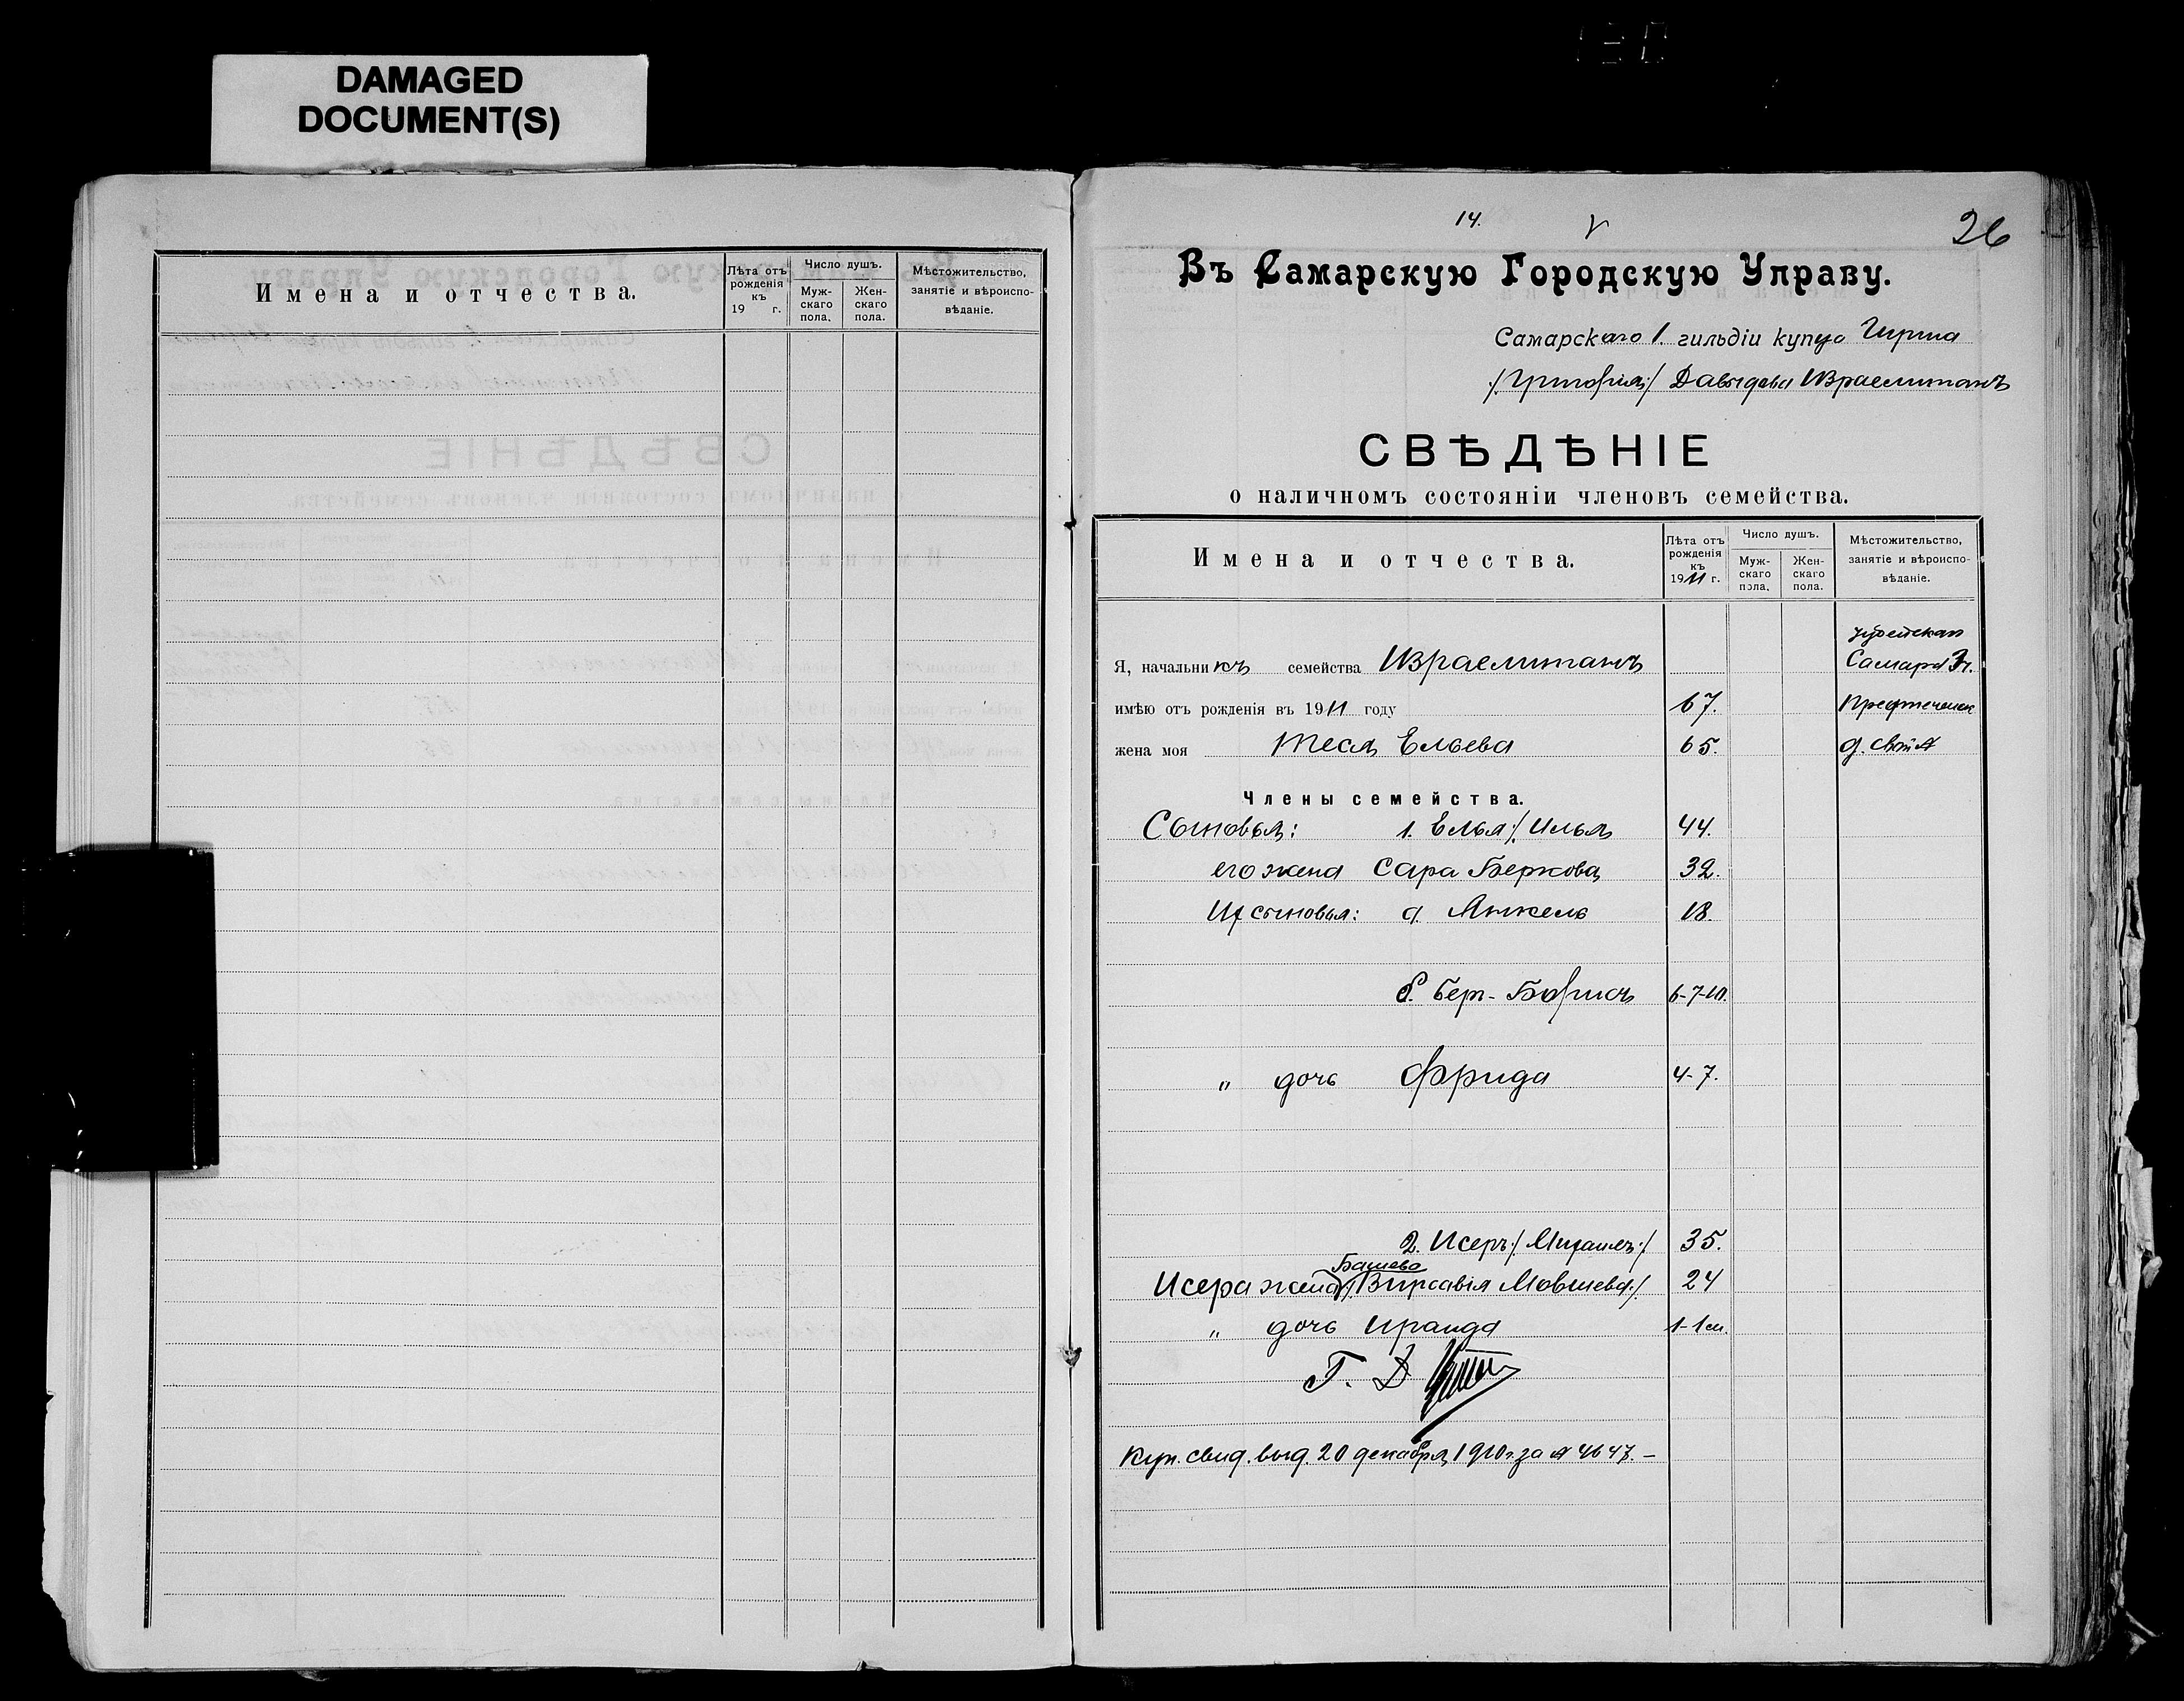 DAMAGED
DOCUMENT(S)
Имена и отчества.
Лѣта отъ
рожденія
къ
19 г.
Число душъ.
Муж-
скаго
пола.
Жен-
скаго
пола.
Мѣстожительство,
занятіе и вѣроиспо-
вѣданіе.
14.
26
Въ Самарскую Городскую Управу.
Самарскаго 1. гильдіи купца Гирша
Давыдова Израелитанъ
СВѢДѢНІЕ
о наличномъ состояніи членовъ семейства.
Имена и отчества.
Лѣта отъ
рожденія
къ
1911 г.
Число душъ.
Муж-
скаго
пола.
Жен-
скаго
пола.
Мѣстожительство,
занятіе и вѣроиспо-
вѣданіе.
іудейская
Я, начальникъ семейства Израелитанъ Самара
имѣю отъ рожденія въ 1911 году 67.
жена моя Теся Ельева 65.
Члены семейства.
Сыновья: 1. Елья /Илья 44.
его жена Сара Беркова 32.
Их сыновья: а. Янкель 18.
б. Бер-Борисъ 6-7-10.
" дочь Фрида 4-7.
2. Исеръ /: Михаилъ :/ 35.
Башева
Исера жена /: Вирсавія Мовшева :/ 24
" дочь Ираида 1-1 м.
Г. Д.
Куп. свид. выд. 20 декабря 1910 г. за № 4647. —